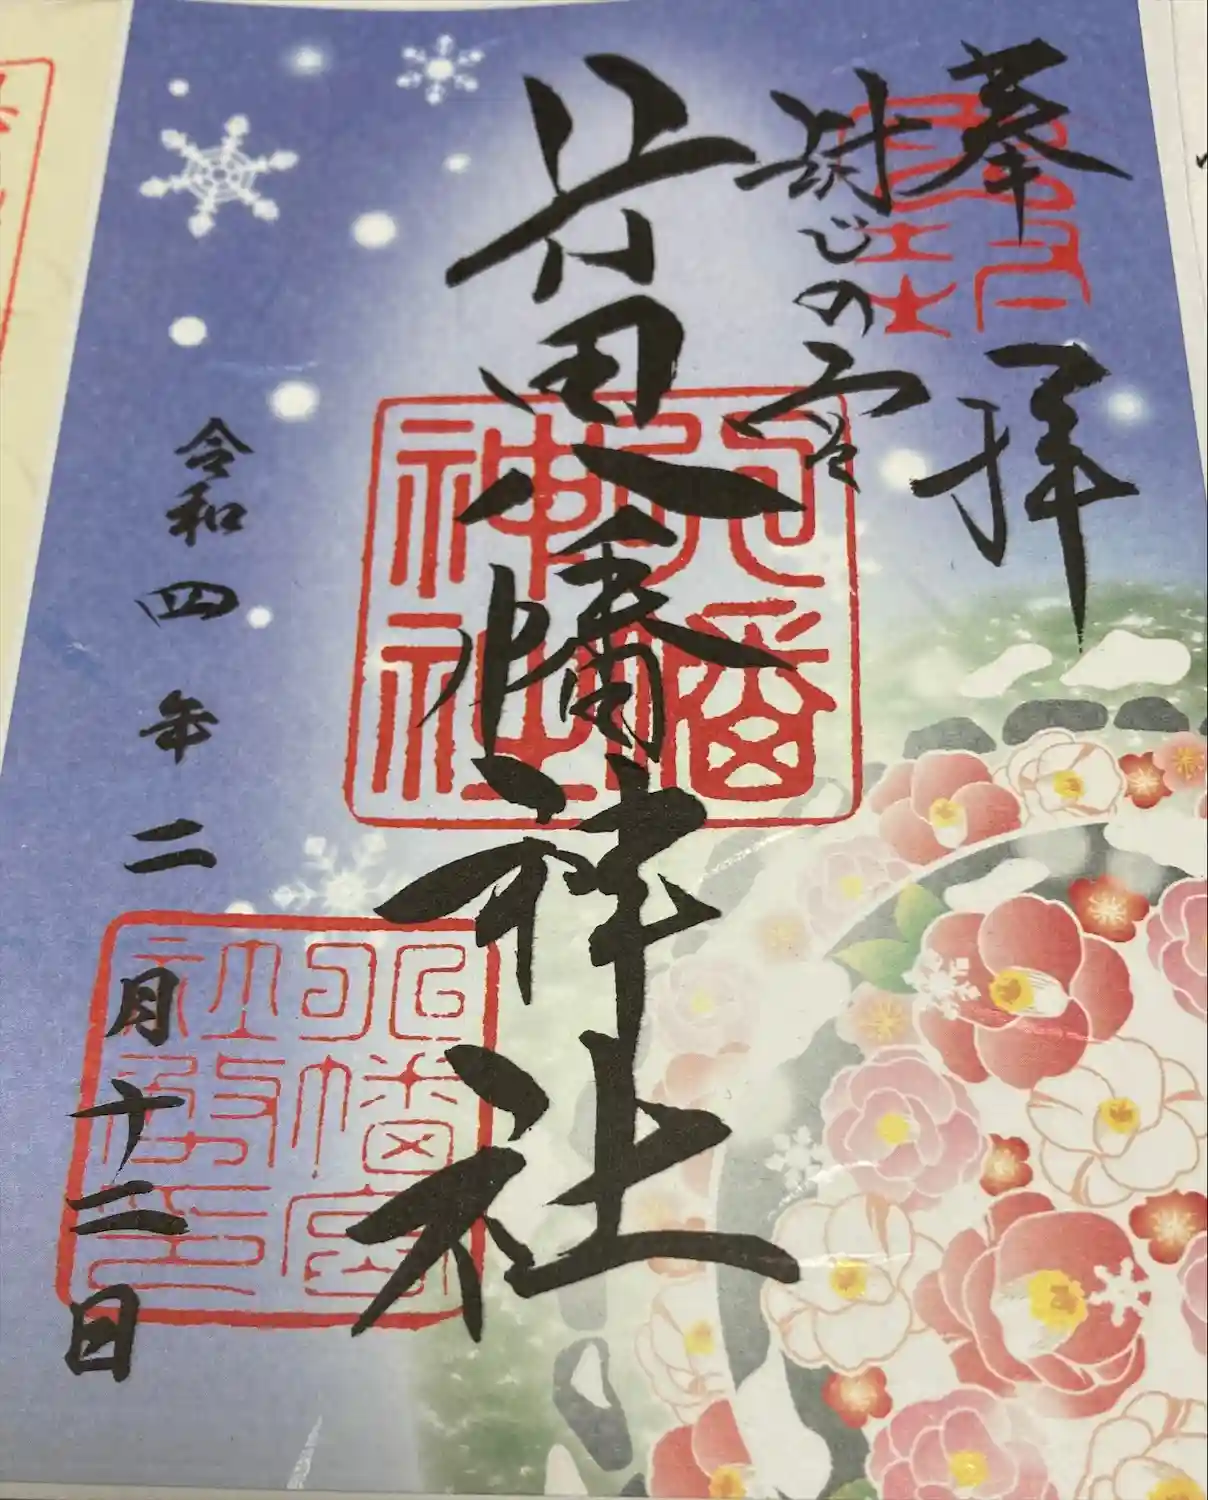 奉拝
封じの宮
田八幡神社
八幡
神社
令和四年二月十二日
八幡宮
社務印